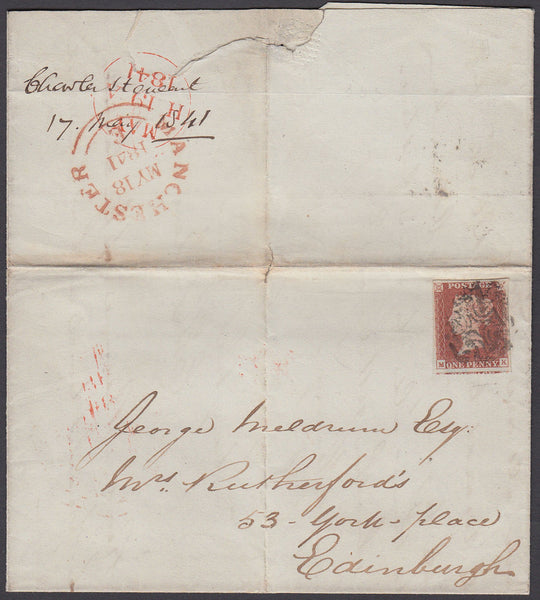 Charles Stewart
17. May 1841
H
19
MAY
1841
MANCHESTER
MY 18
1841
POSTAGE
M ONE PENNY K
George Meldrum Esq:
Mrs. Rutherford's
53 - York - place
Edinburgh